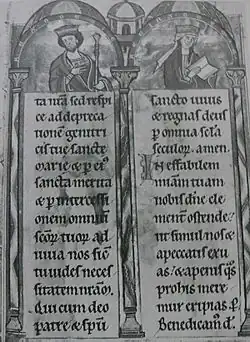 ta nr̃a sed respi
ce ad depreca
tionẽ genitri
cis tue sancte
marie & ꝑ ei᷒
sancta merita
& ꝑ intercessi
onem omniũ
sc̃oꝝ tuoꝝ ad
iuua nos siẽ
tu uides neces
sitatem nr̃am.
Qui cum deo
patre & sp̃u
sancto uiuis
& regnas deus
ꝑ omnia sc̃la
seculoꝝ. amen.
Ineffabilem
mĩam tuam
nobis dñe cle
menter ostende.
ut simul nos &
a peccatis exu
as. & a penis q̃s
ꝓ his mere
mur eripias. ꝑ
Benedicam᷒ d̃.